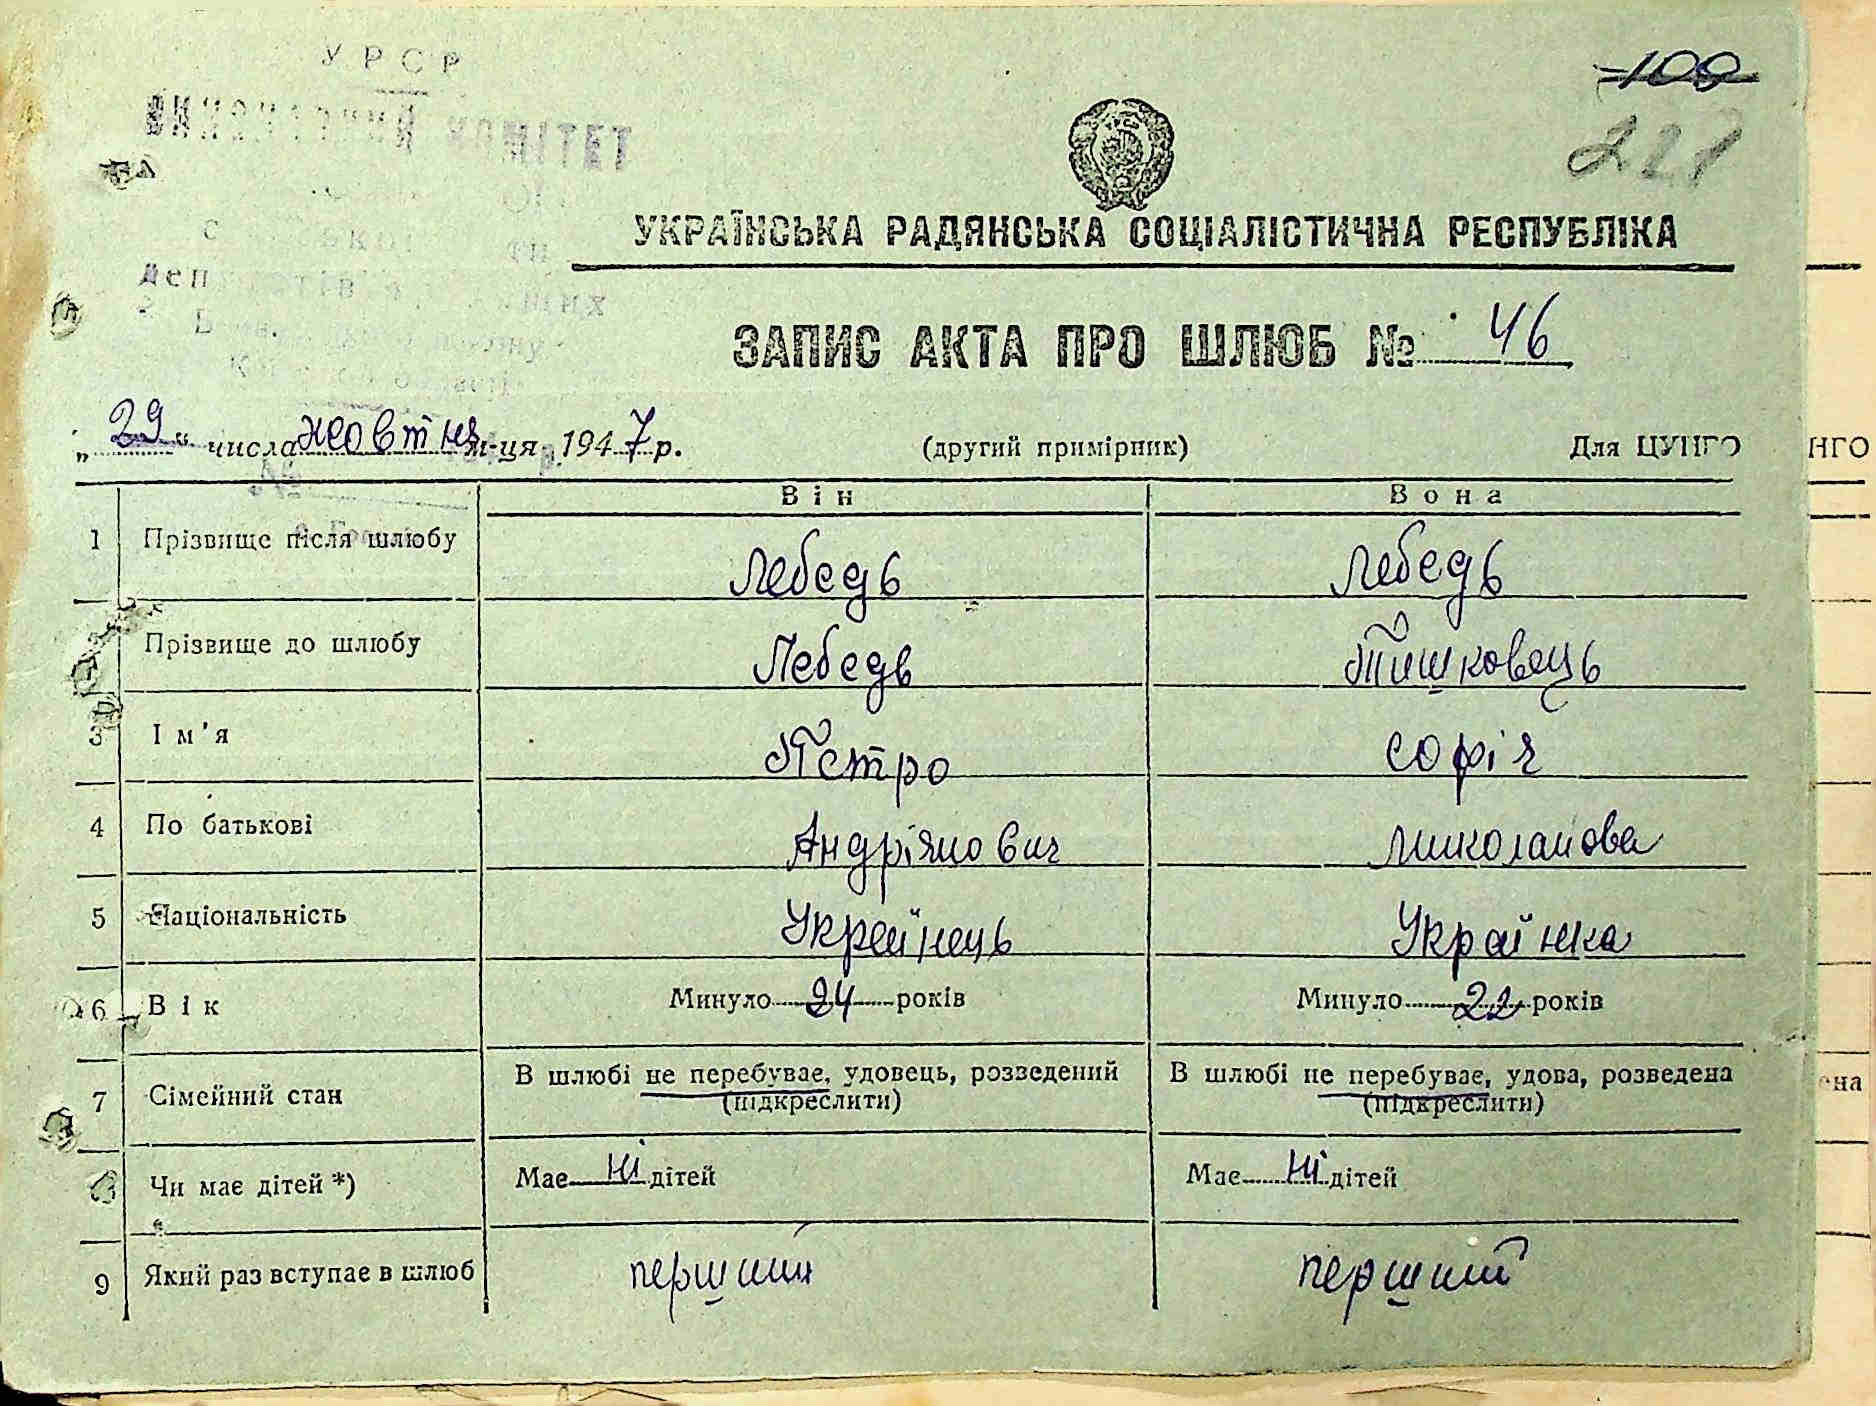 УРСР
ВИКОНАВЧИЙ КОМІТЕТ
100
221
УКРАЇНСЬКА РАДЯНСЬКА СОЦІАЛІСТИЧНА РЕСПУБЛІКА
ЗАПИС АКТА ПРО ШЛЮБ № 46
„29“ числа жовтня м-ця 1947 р. (другий примірник) Для ЦУНГО
НГО
Він Вона
1 Прізвище після шлюбу Лебедь Лебедь
2 Прізвище до шлюбу Лебедь Тишковець
3 Ім'я Петро Софія
4 По батькові Андріянович Миколаївна
5 Національність Українець Українка
6 Вік Минуло 24 років Минуло 22 років
7 Сімейний стан В шлюбі не перебуває, удовець, розведений В шлюбі не перебуває, удова, розведена
(підкреслити) (підкреслити)
ена
8 Чи має дітей *) Має ні дітей Має ні дітей
9 Який раз вступає в шлюб перший перший